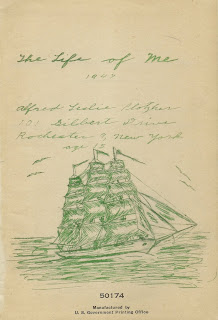 The Life of Me
1947
Alfred Leslie
Drive
Rochester 9, New York
age 15
50174
Manufactured by
U. S. Government Printing Office